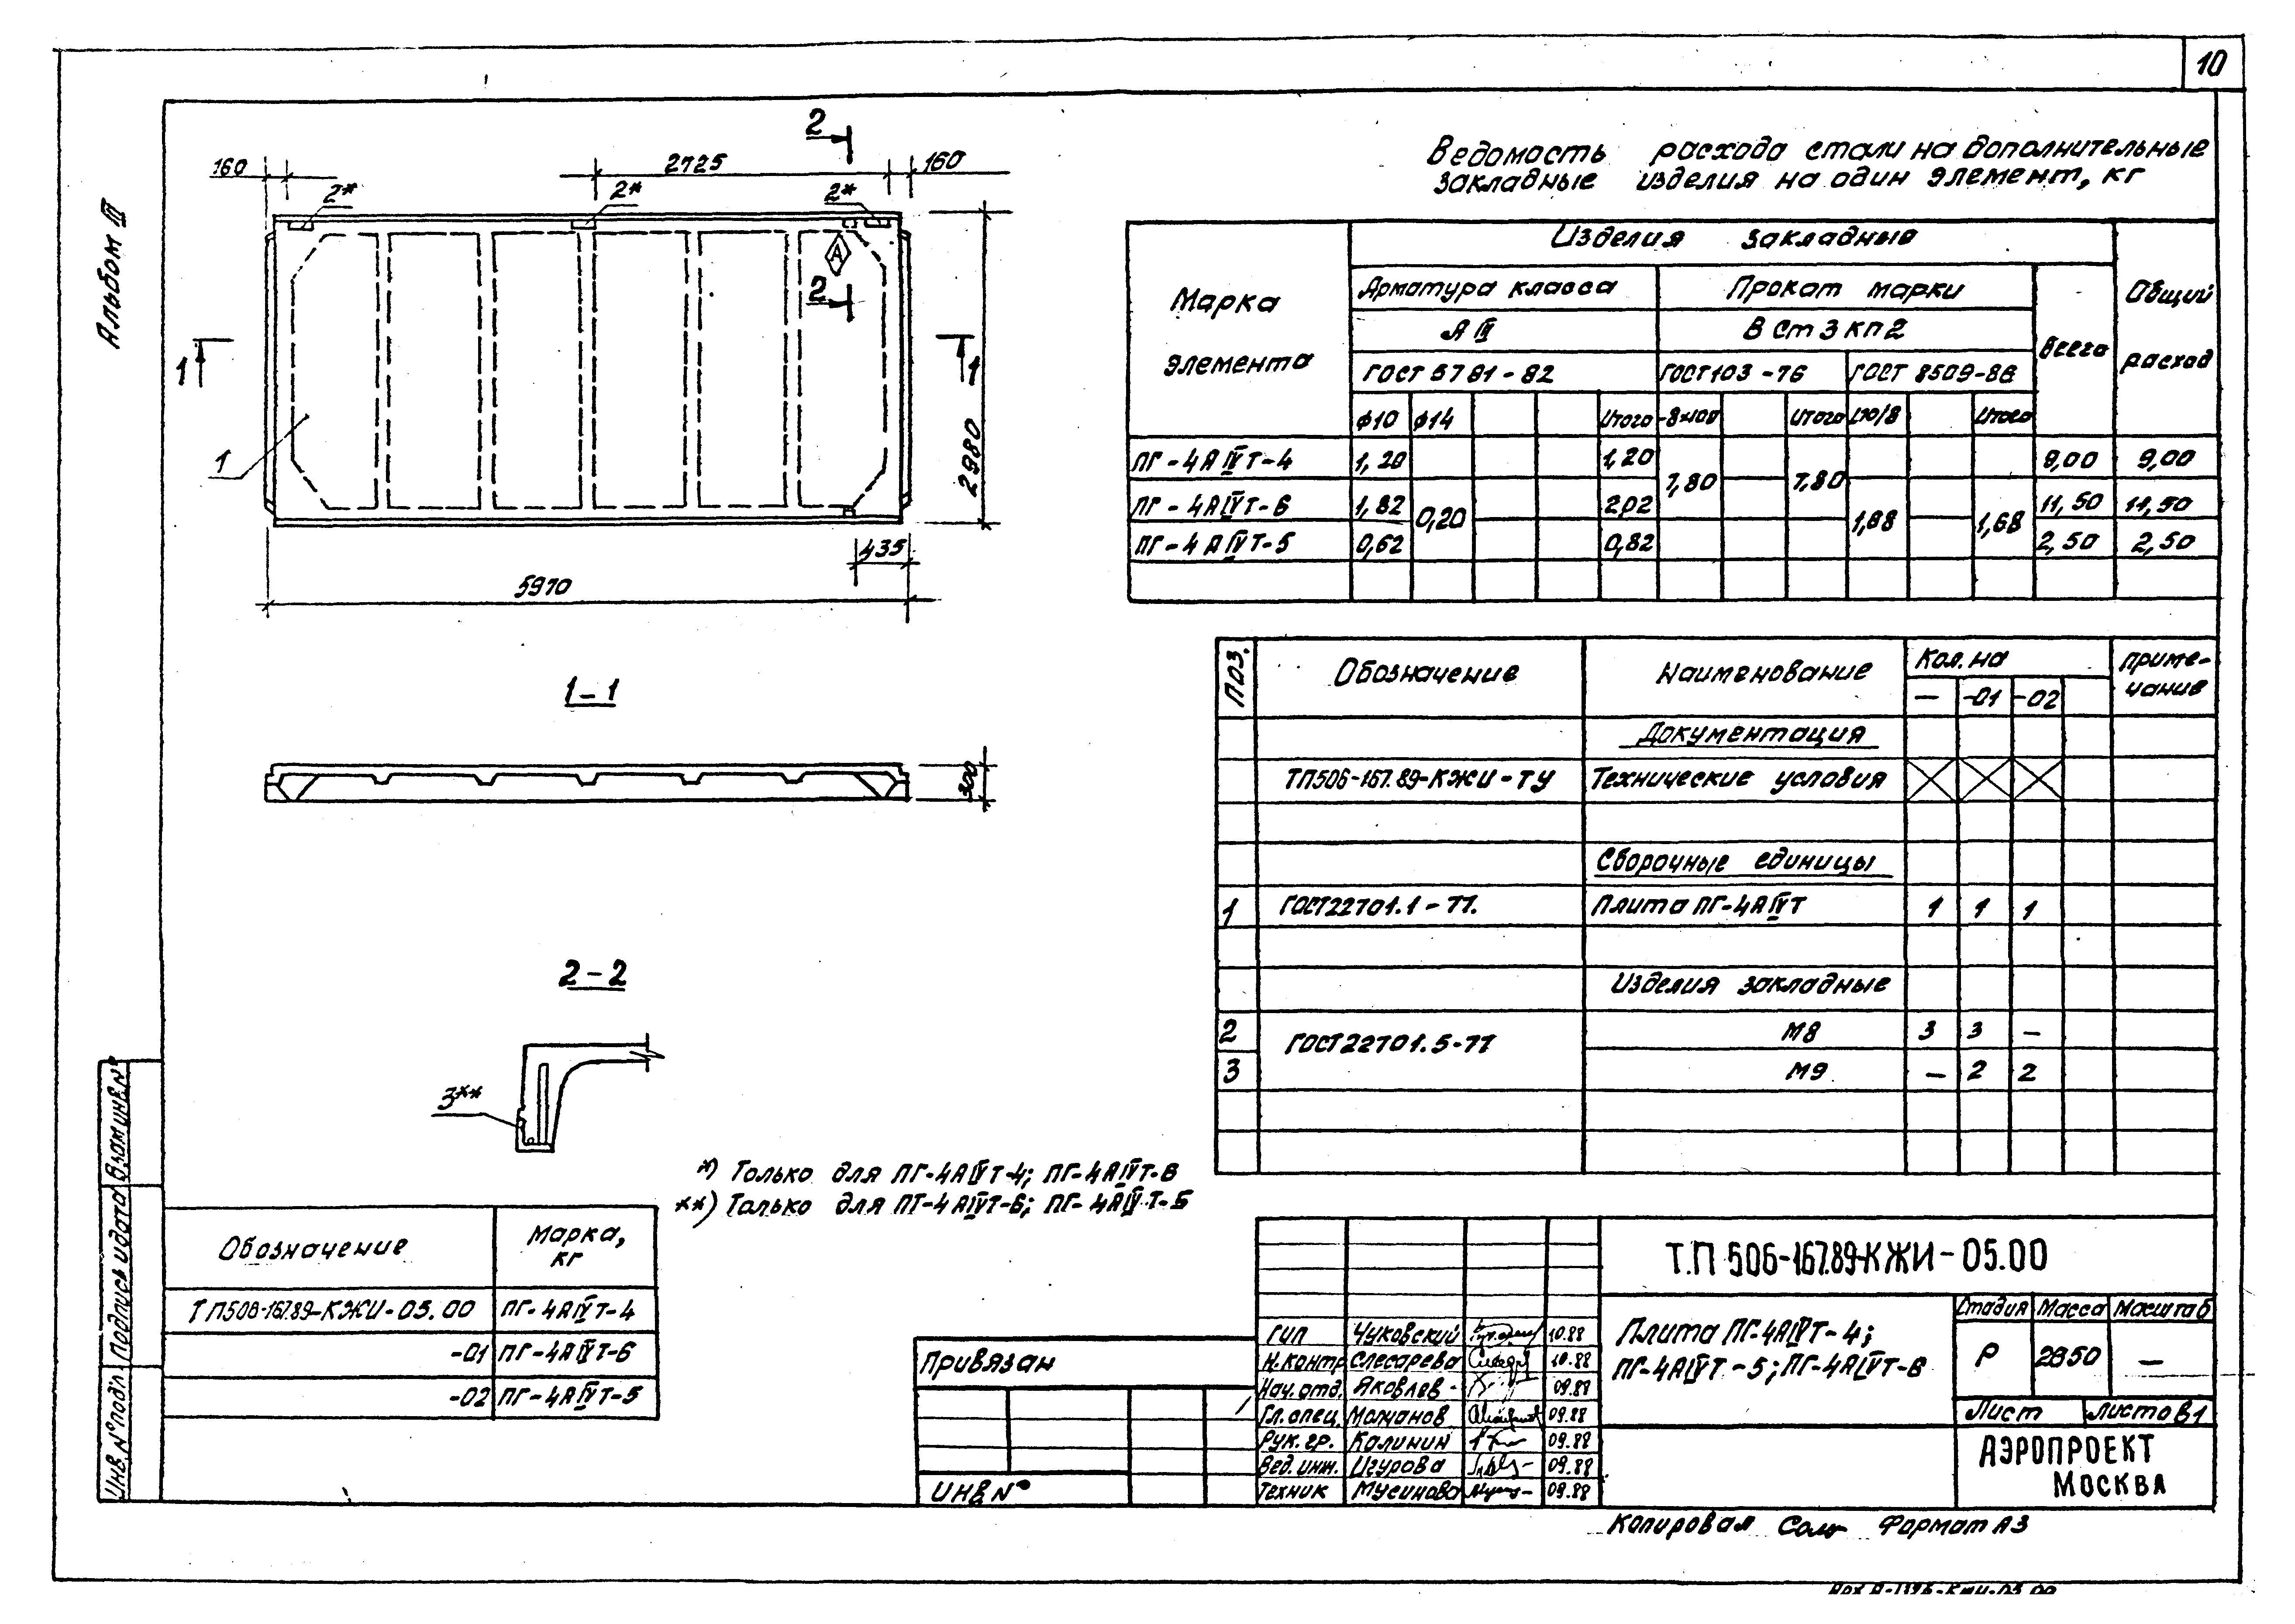 10
Альбом III
2
160
2725
160
2*
2*
2*
А
2
1
1
1
2980
435
5970
1-1
300
2-2
3**
*) Только для ПГ-4АIVТ-4; ПГ-4АIVТ-6
**) Только для ПГ-4АIVТ-6; ПГ-4АIVТ-5
Ведомость расхода стали на дополнительные
закладные изделия на один элемент, кг
Марка элемента
Изделия закладные
Общий расход
Арматура класса
Прокат марки
Всего
А III
В Ст 3 кп 2
ГОСТ 5781-82
ГОСТ 103-76
ГОСТ 8509-86
ф10 ф14 Итого -8×100 Итого Итого
ПГ-4АIVТ-4 1,20 1,20 9,00 9,00
7,80 7,80
ПГ-4АIVТ-6 1,82 2,02 11,50 11,50
0,20 1,68 1,68
ПГ-4АIVТ-5 0,62 0,82 2,50 2,50
Поз. Обозначение Наименование Кол. на Приме-
чание
— -01 -02
Документация
ТП506-167.89-КЖИ-ТУ Технические условия
Сборочные единицы
1 ГОСТ22701.1-77. Плита ПГ-4АIVТ 1 1 1
Изделия закладные
2 М8 3 3 —
ГОСТ22701.5-77
3 М9 — 2 2
Обозначение Марка,
кг
ТП506-167.89-КЖИ-05.00 ПГ-4АIVТ-4
-01 ПГ-4АIVТ-6
-02 ПГ-4АIVТ-5
Взам инв. №
Подпись и дата
Инв. № подл.
Привязан
Инв №
ГИП Чуковский 10.88
Н.контр Слесарева 10.88
Нач. отд. Яковлев 09.88
Гл. спец. Молчанов 09.88
Рук. гр. Калинин 09.88
Вед. инж. Игурова 09.88
Техник Мусинова 09.88
Т.П 506-167.89-КЖИ-05.00
Плита ПГ-4АIVТ-4;
ПГ-4АIVТ-5; ПГ-4АIVТ-6
Стадия Масса Масштаб
Р 2650 —
Лист Листов 1
АЭРОПРОЕКТ
МОСКВА
Копировал Формат А3